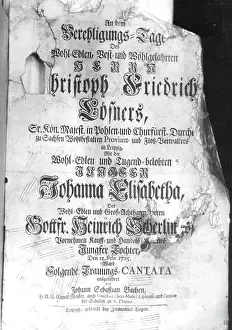 An dem
Verehligungs-Tage
Des
Wohl-Edlen, Vest- und Wohlgelahrten
HERRN
Christoph Friedrich
Lösners,
Sr. Kön. Majest. in Pohlen und Churfürstl. Durchl.
zu Sachsen Wohlbestalten Proviant- und Floß-Verwalters
in Leipzig,
Mit der
Wohl-Edlen und Tugend-belobten
JUNGFER
Johanna Elisabetha,
Des
Wohl-Edlen und Groß-Achtbaren Herrn
Gottfr. Heinrich Scherling
Vornehmen Kauff- und Handels
Jungfer Tochter,
Den 12. Febr. 1725.
Ward
Folgende Trauungs-CANTATA
Johann Sebastian Bachen,
der Schulen zu St. Thomæ.
Leipzig, gedruckt bey Immanuel Tietzen.